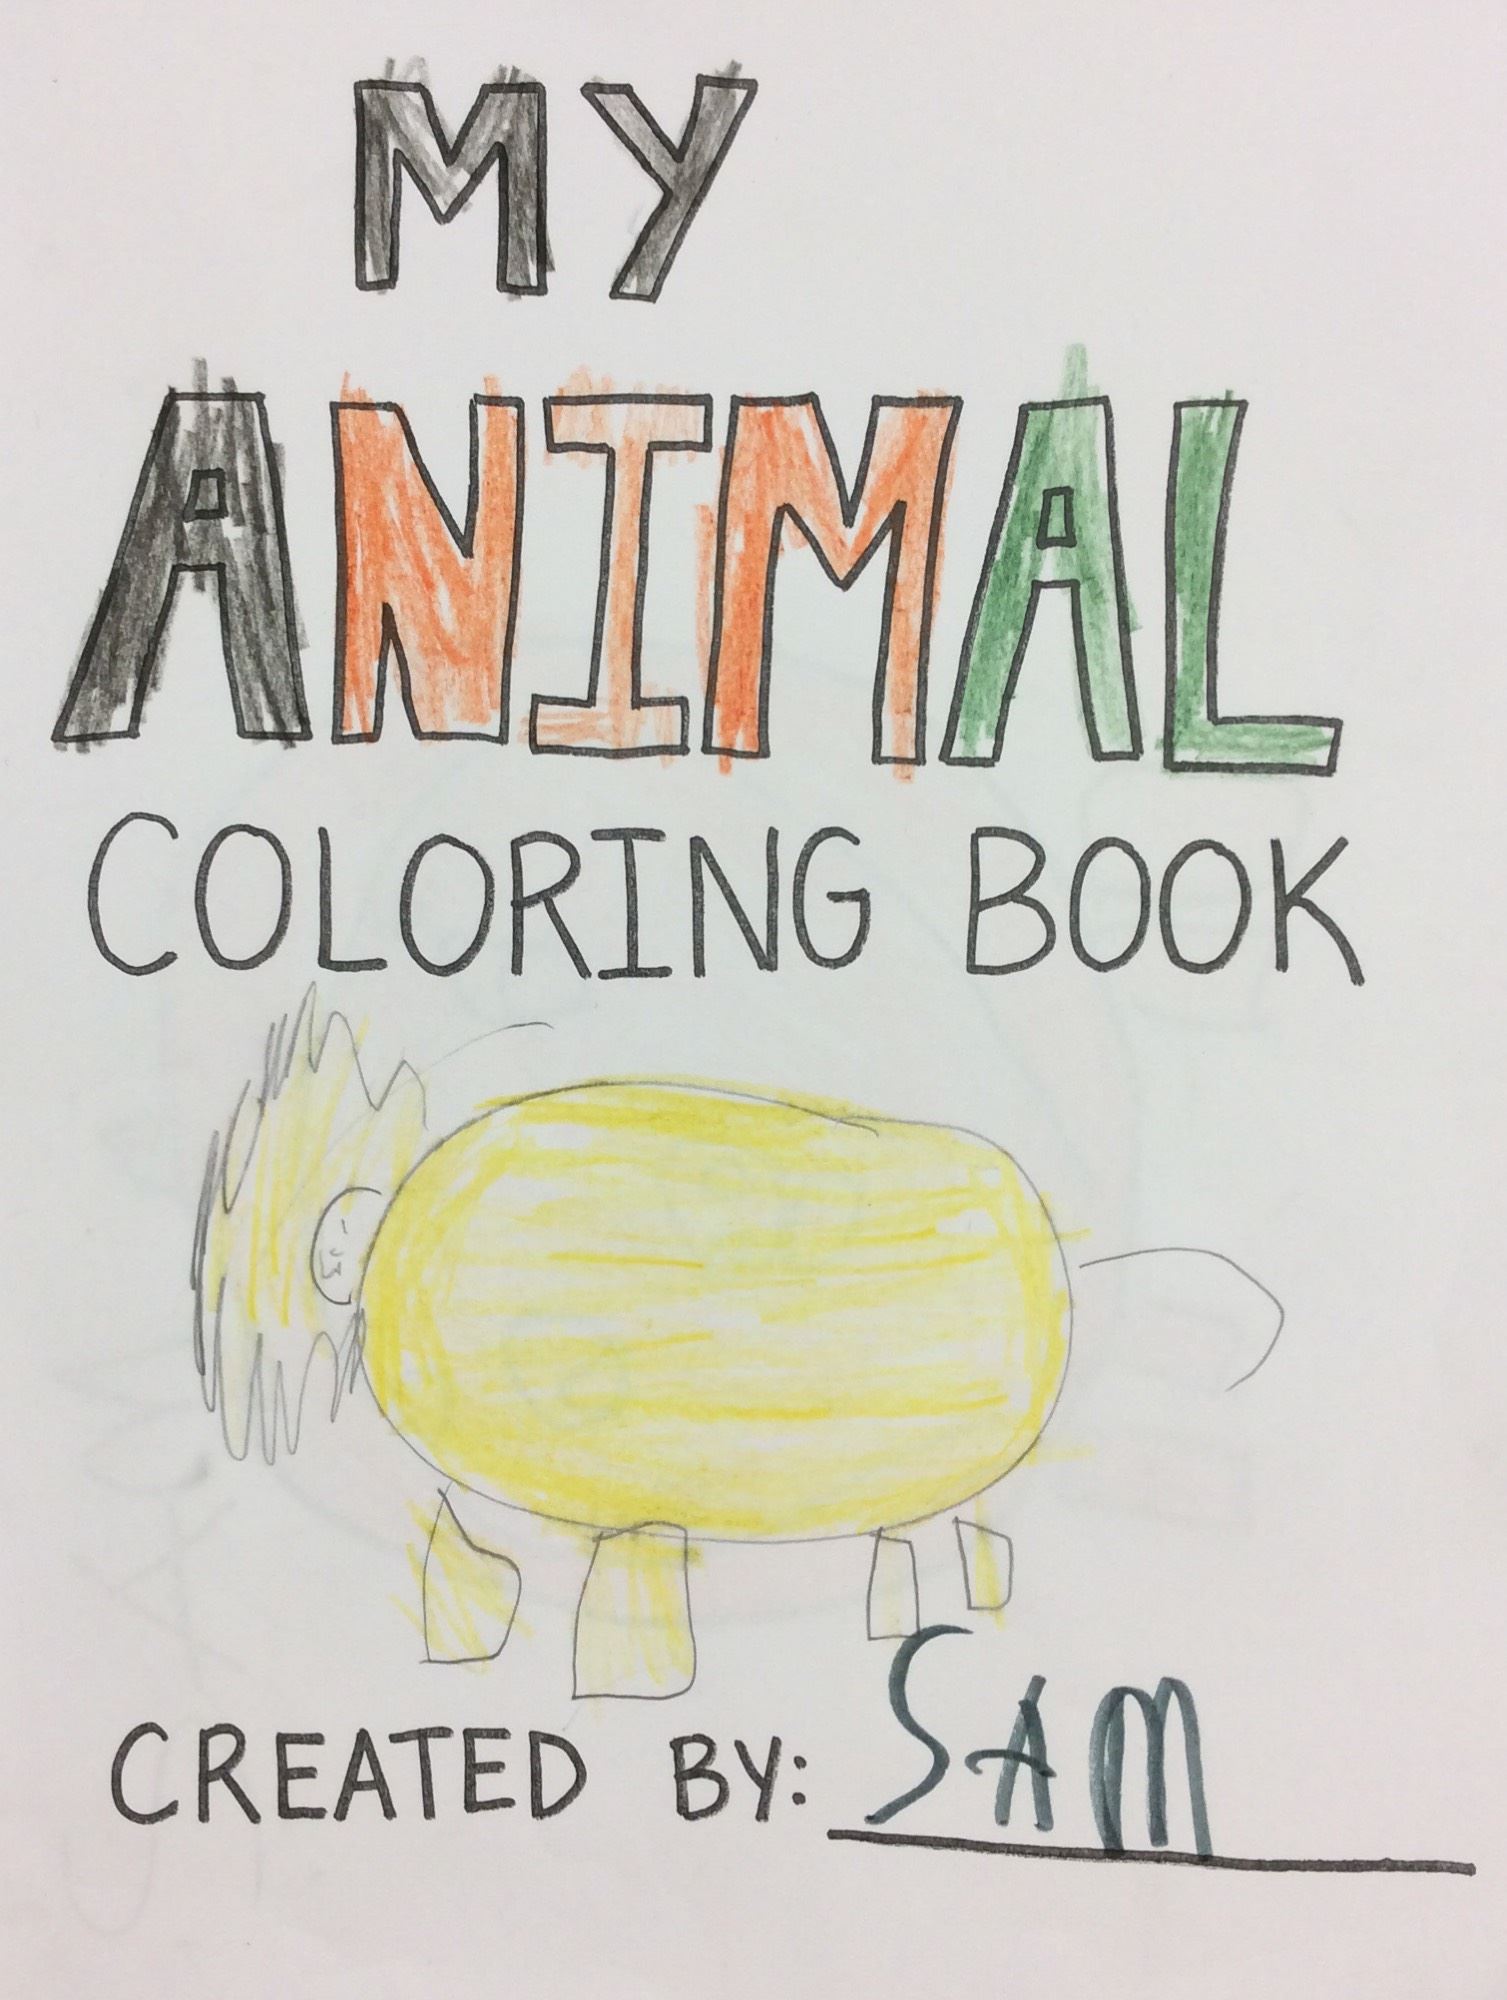 MY
ANIMAL
COLORING BOOK
CREATED BY: SAM